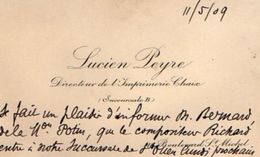 11/5/09
Lucien Peyre
Directeur de l'Imprimerie Chaix
(Succursale B)
fait un plaisir d'informer M. Bernard,
de la Mon Potin, que le compositeur Richard
entre à notre Succursale de St Ouen Lundi prochain
Boulevard St Michel